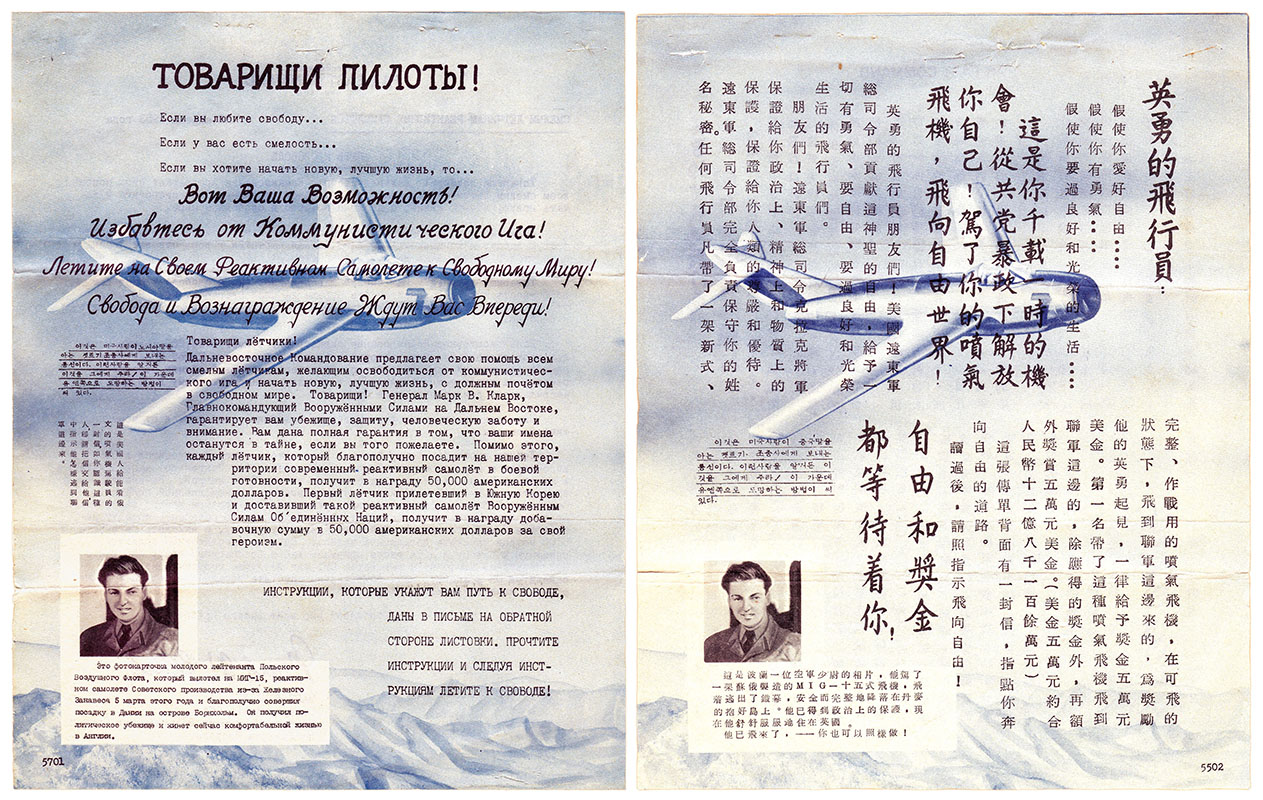 ТОВАРИЩИ ПИЛОТЫ!
Если вы любите свободу...
Если у вас есть смелость...
Если вы хотите начать новую, лучшую жизнь, то...
Вот Ваша Возможность!
Избавтесь от Коммунистического Ига!
Летите на Своем Реактивном Самолете к Свободному Миру!
Свобода и Вознаграждение Ждут Вас Впереди!
이것은 미국사람이 노시아말을
아는 젯트기 조종사에게 보내는
통신이다. 이런사람을 알거든
이것을 그에게 주라! 이 가운데
유엔쪽으로 도망하는 방법이
써 있다.
軍這邊來。
Товарищи лётчики!
Дальневосточное Командование предлагает свою помощь всем
смелым лётчикам, желающим освободиться от коммунистичес-
кого ига и начать новую, лучшую жизнь, с должным почётом
в свободном мире. Товарищи! Генерал Марк В. Кларк,
Главнокомандующий Вооружёнными Силами на Дальнем Востоке,
гарантирует вам убежище, защиту, человеческую заботу и
внимание. Вам дана полная гарантия в том, что ваши имена
останутся в тайне, если вы того пожелаете. Помимо этого,
каждый лётчик, который благополучно посадит на нашей тер-
ритории современный реактивный самолёт в боевой
готовности, получит в награду 50,000 американских
долларов. Первый лётчик прилетевший в Южную Корею
и доставивший такой реактивный самолёт Вооружённым
Силам Об'единённых Наций, получит в награду доба-
вочную сумму в 50,000 американских долларов за свой
героизм.
ИНСТРУКЦИИ, КОТОРЫЕ УКАЖУТ ВАМ ПУТЬ К СВОБОДЕ,
ДАНЫ В ПИСЬМЕ НА ОБРАТНОЙ
СТОРОНЕ ЛИСТОВКИ. ПРОЧТИТЕ
ИНСТРУКЦИИ И СЛЕДУЯ ИНСТ-
РУКЦИЯМ ЛЕТИТЕ К СВОБОДЕ!
Это фотокарточка молодого лейтенанта Польского
Воздушного флота, который вылетел на МИГ-15, реактив-
ном самолете Советского производства из-за Железного
Занавеса 5 марта этого года и благополучно совершил
посадку в Дании на острове Борнхольм. Он получил по-
литическое убежище и живет сейчас комфортабельной жизнью
в Англии.
5701
英勇的飛行員：
假使你愛好自由....
假使你有勇氣....
假使你要過良好和光榮的生活....
這是你千載一時的機
會！從共党暴政下解放
你自己！駕了你的噴氣
飛機，飛向自由世界！
英勇的飛行員朋友們！美國遠東軍
總司令部貢獻這神聖的自由，給予一
切有勇氣、要自由、要過良好和光榮
生活的飛行員們。
朋友們！遠東軍總司令克拉克將軍
保證給你政治上、精神上和物質上的
保護，保證給你人類的尊嚴和優待。
遠東軍總司令部完全負責保守你的姓
名秘密。任何飛行員凡帶了一架新式、
完整、作戰用的噴氣飛機，在可飛的
狀態下，飛到聯軍這邊來的，爲獎勵
他的英勇起見，一律給予獎金五萬元
美金。第一名帶了這種噴氣飛機飛到
聯軍這邊的，除應得的獎金外，再額
外獎賞五萬元美金。（美金五萬元約合
人民幣十二億八千一百餘萬元）
這張傳單背面有一封信，指點你奔
向自由的道路。
讀過後，請照指示飛向自由！
自由和獎金
都等待着你！
이것은 미국사람이 중국말을
아는 젯트기 조종사에게 보내는
통신이다. 이런사람을 알거든 이
것을 그에게 주라! 이 가운데
유엔쪽으로 도망하는 방법이 써
있다.
這是波蘭一位空軍少尉的相片，他駕了
一架蘇俄製造的MIG—十五式飛機，飛
着逃出了鐵幕，安全而完整地降落在丹麥
的抱好島上。他已得到政治上的保護，現
在他舒舒服服地住在英國。
他已飛來了，——你也可以照樣做！
5502